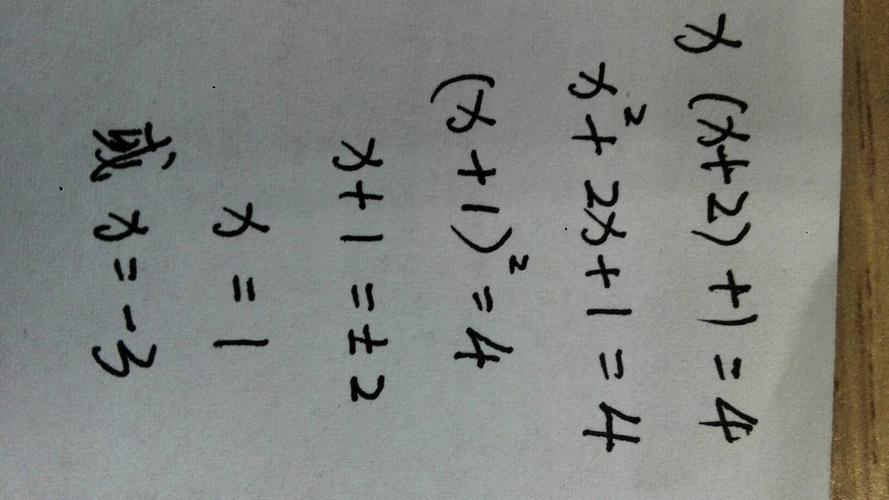 x(x+2)+1=4
x²+2x+1=4
(x+1)²=4
x+1=±2
x=1
或 x=-3